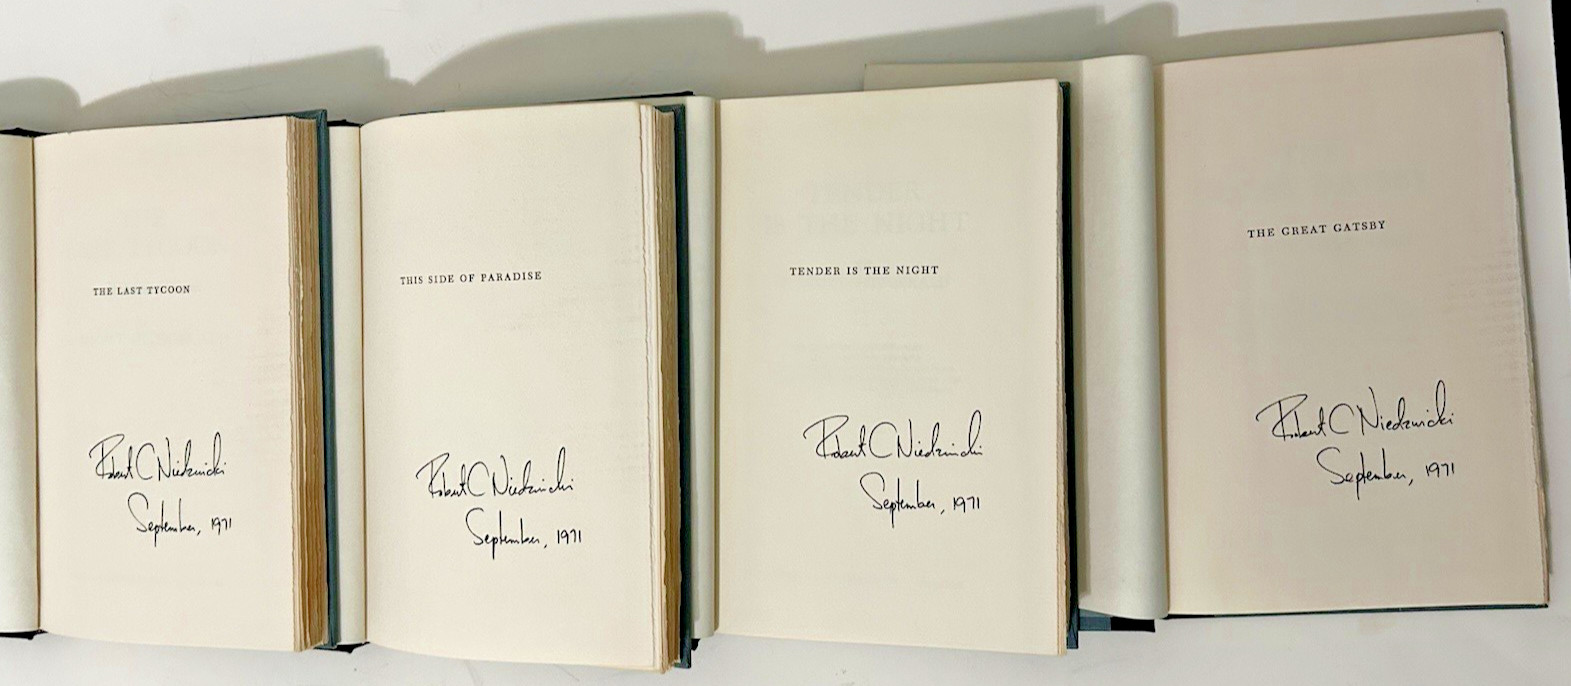 THE LAST TYCOON
Robert C Niedzwicki
September, 1971
THIS SIDE OF PARADISE
Robert C Niedzwicki
September, 1971
TENDER IS THE NIGHT
Robert C Niedzwicki
September, 1971
THE GREAT GATSBY
Robert C Niedzwicki
September, 1971